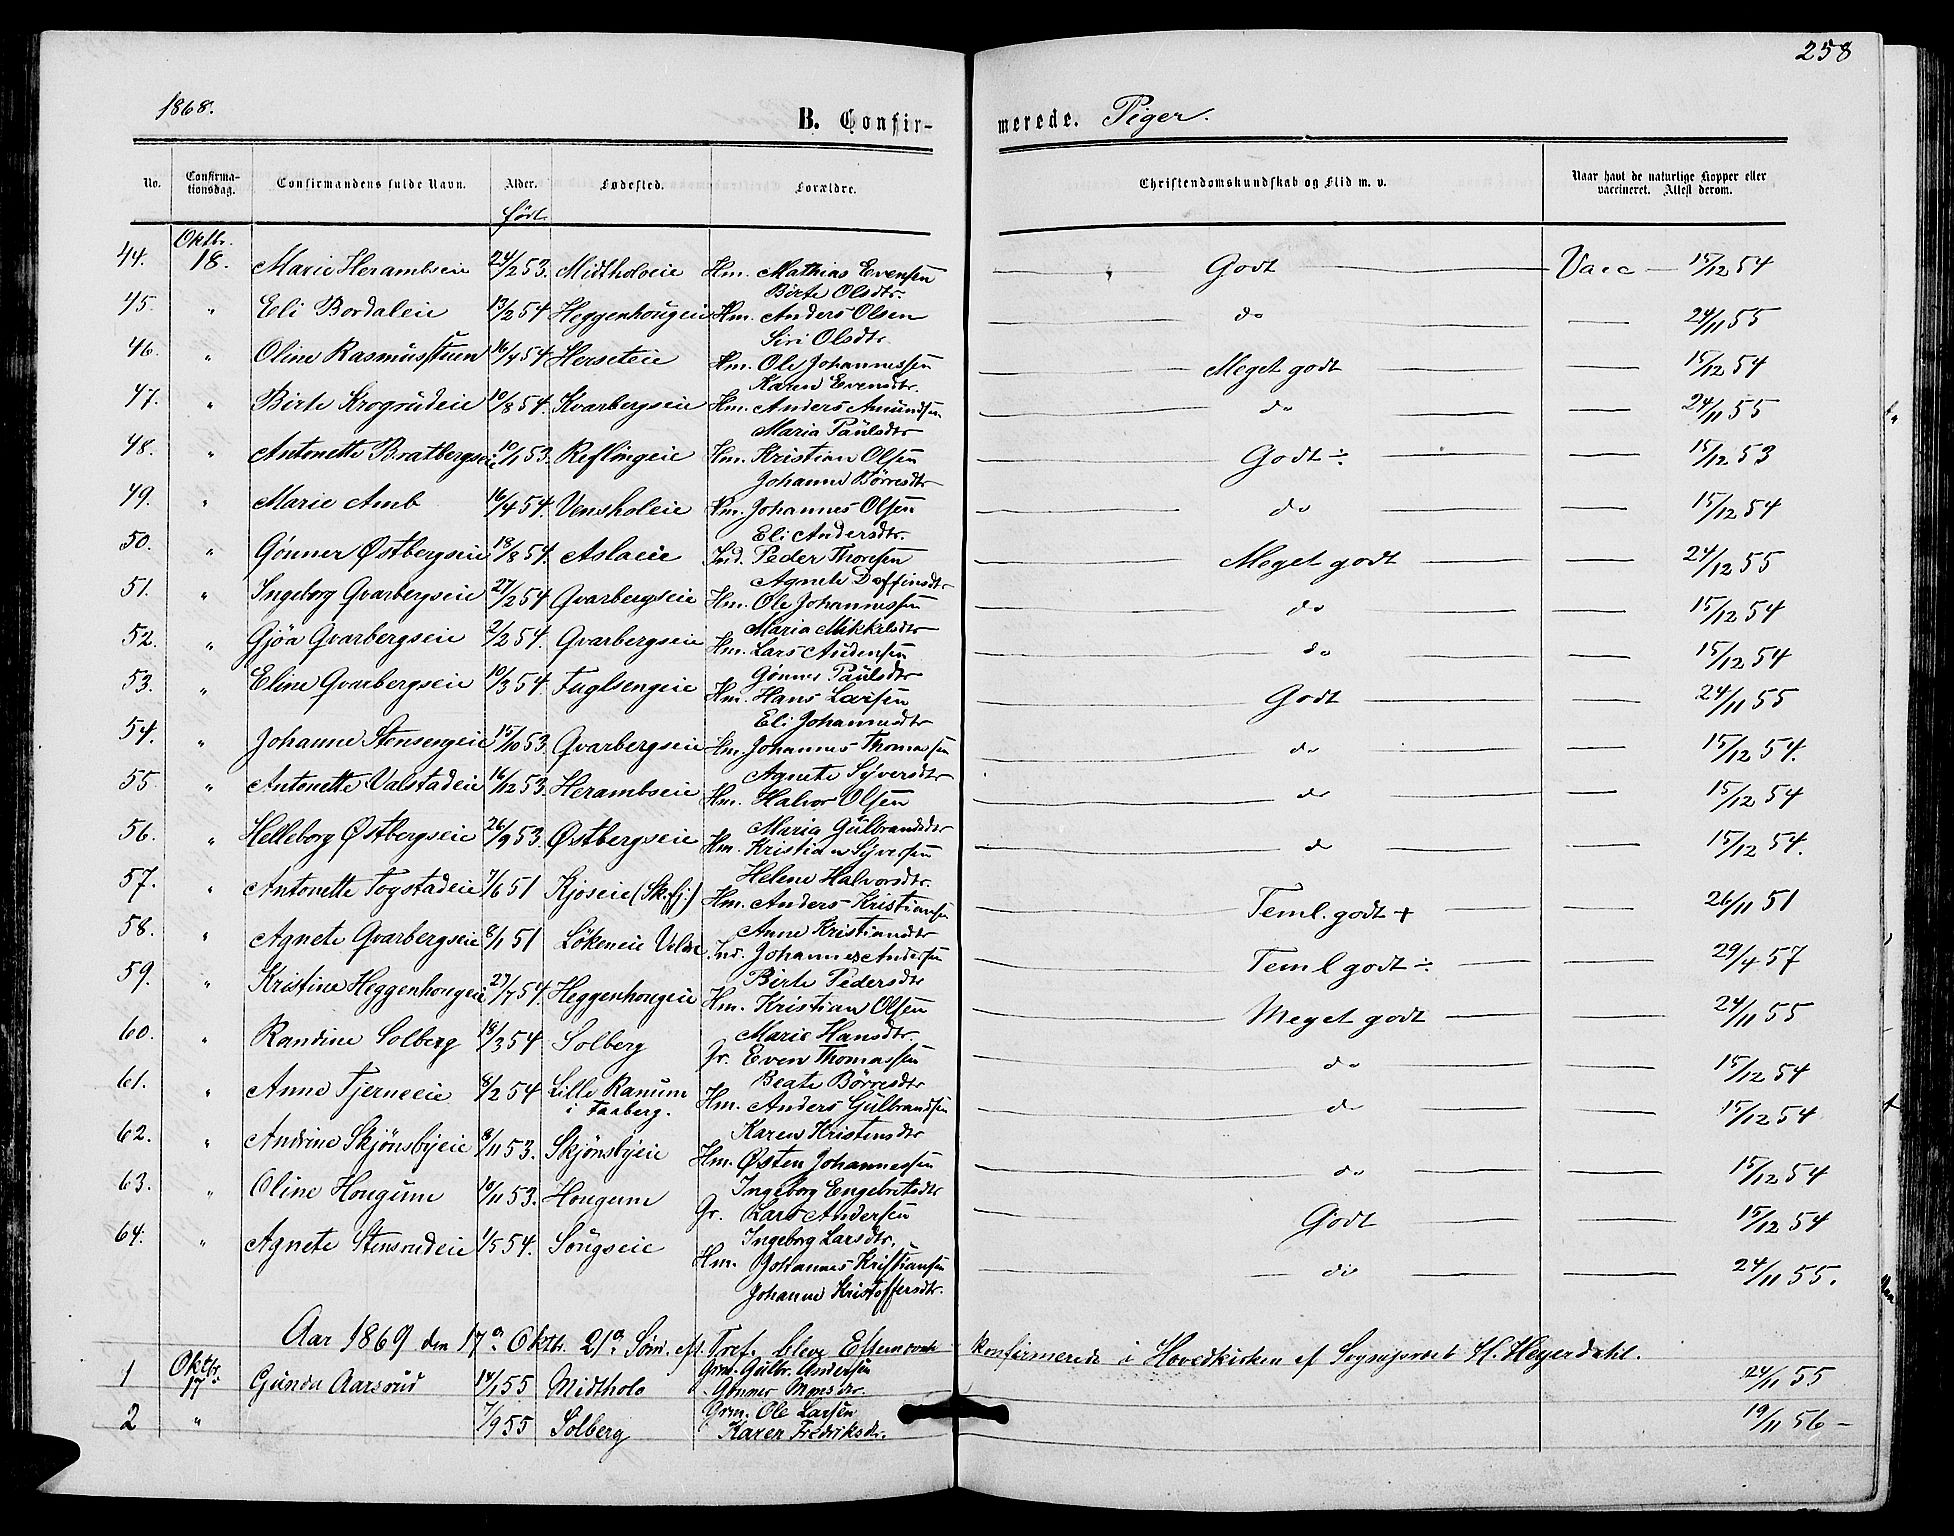 258
1868.
B. Confirmerede. Piger.
No. Confirmationsdag. Confirmandens fulde Navn. Alder. Fødested. Forældre. Christendomskundskab og Flid m. v. Naar havt de naturlige Kopper eller vaccineret. Attest derom.
født
Oktbr.
44. 18. Marie Herambseie 24/2 53. Midtholoeie Hm. Mathias Evensen Godt Vacc 15/12 54
Birte Olsdtr.
45. " Eli Bordaleie 13/2 54 Heggenhougeie Hm. Anders Olsen do 24/11 55
Siri Olsdtr
46. " Oline Rasmusstuen 16/4 54 Herseteie Hm. Ole Johannessen Meget godt 15/12 54
Karen Evensdtr.
47. " Birte Krogrudeie 10/8 54 Kvarbergseie Hm. Anders Amundsen do 24/11 55
Maria Paulsdtr
48. " Antonette Bratbergseie 10/1 53. Reflingeie Hm. Kristian Olsen Godt ÷ 15/12 53
Johanne Børresdtr
49. " Marie Amb 16/4 54. Vensholeie Hm. Johannes Olsen do 15/12 54
Eli Andersdtr.
50. " Gunner Østbergseie 18/8 54. Aslaeie Ind. Peder Thoresen Meget godt 24/12 55
Agnete Doffinsdtr
51. " Ingeborg Qvarbergseie 27/2 54 Qvarbergseie Hm. Ole Johannessen do 15/12 54
Maria Mikkelsdtr
52. " Gjøa Qvarbergseie 2/2 54. Qvarbergseie Hm. Lars Audensen do 15/12 54
Gunner Paulsdtr
53. " Eline Qvarbergseie 10/3 54 Fuglsengeie Hm. Hans Larsen Godt 24/11 55
Eli Johannesdtr
54. " Johanne Stensengeie 15/10 53. Qvarbergseie Hm. Johannes Thomassen do 15/12 54.
Agnete Syversdtr
55. " Antonette Valstadeie 16/12 53. Herambseie Hm. Halvor Olsen do 15/12 54
Maria Gulbrandsdtr
56. " Helleborg Østbergseie 26/9 53 Østbergseie Hm. Kristian Syversen do 15/12 54.
Helene Halvorsdtr.
57. " Antonette Togstadeie 7/6 51 Kjoseie (Sk. fj.) Hm. Anders Kristiansen Teml. godt + 26/11 51
Anne Kristiansdtr
58. " Agnete Qvarbergseie 8/1 51 Løkeneie Ind. Johannes Andersen Teml godt ÷ 29/4 57
Birte Pedersdtr
59. " Kristine Heggenhougeie 27/7 54. Heggenhougeie Hm. Kristian Olsen Meget godt 24/11 55
Marie Hansdtr.
60. " Randine Solberg 18/3 54 Solberg Gr. Even Thomassen do 15/12 54
Beate Børresdtr
61. " Anne Tjerneeie 8/2 54 Lille Ranum i Faaberg. Hm. Anders Gulbrandsen do 15/12 54
Karen Kristensdtr
62. " Andrine Skjønsbyeie 8/11 53. Skjønsbyeie Hm. Østen Johannessen do 15/12 54
Ingeborg Engebretsdtr
63. " Oline Hougum 10/11 53. Hougum Gr. Lars Andersen Godt 15/12 54
Ingeborg Larsdtr.
64. " Agnete Stensrudeie 1/5 54. Sougseie Hm. Johannes Kristiansen do 24/11 55.
Johanne Kristoffersdtr.
Aar 1869 den 17de Oktbr. 21de Søn. eft. Tref. bleve konfirmerede i Hovedkirken af Sogneprest H. Heyerdahl.
Oktbr.
1 17 Gunda Aarsrud 14/1 55 Midtholo Grm. Gulbr. Andersen 24/11 55
Gunner Monsdtr.
2 " 7/9 55 Solberg Grm. Ole Larsen 19/11 56 –
Karen Fredriksdr.